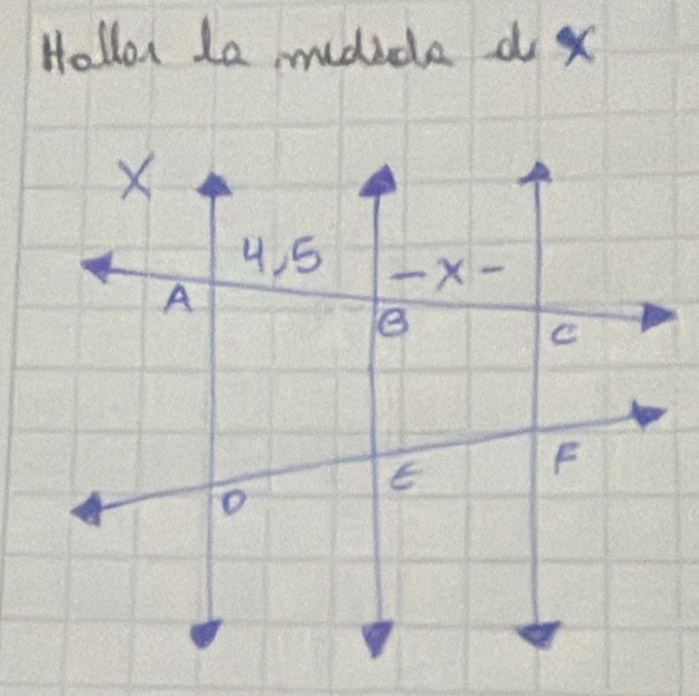 Hallar la medida de x
X
4,5
-x-
A
B
C
D
E
F